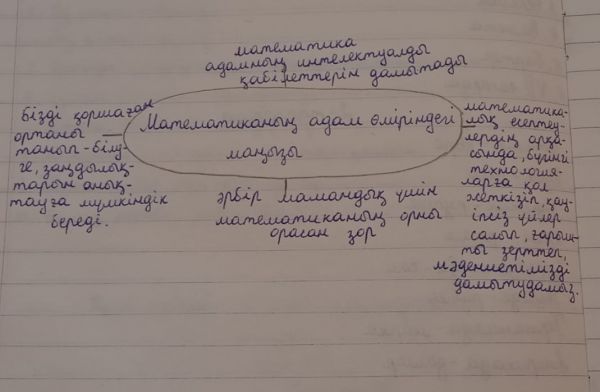 математика
адамның интелектуалды
қабілеттерін дамытады
Математиканың адам өміріндегі
маңызы
бізді қоршаған
ортаны
танып-білу-
ге, заңдылық-
тарын анық-
тауға мүмкіндік
береді.
әрбір мамандық үшін
математиканың орны
орасан зор
математика-
лық есептеу-
лердің арқа-
сында, бүгінгі
технология-
ларға қол
жеткізіп, қау-
іпсіз үйлер
салып, ғарыш-
ты зерттеп,
мәдениетімізді
дамытудамыз.